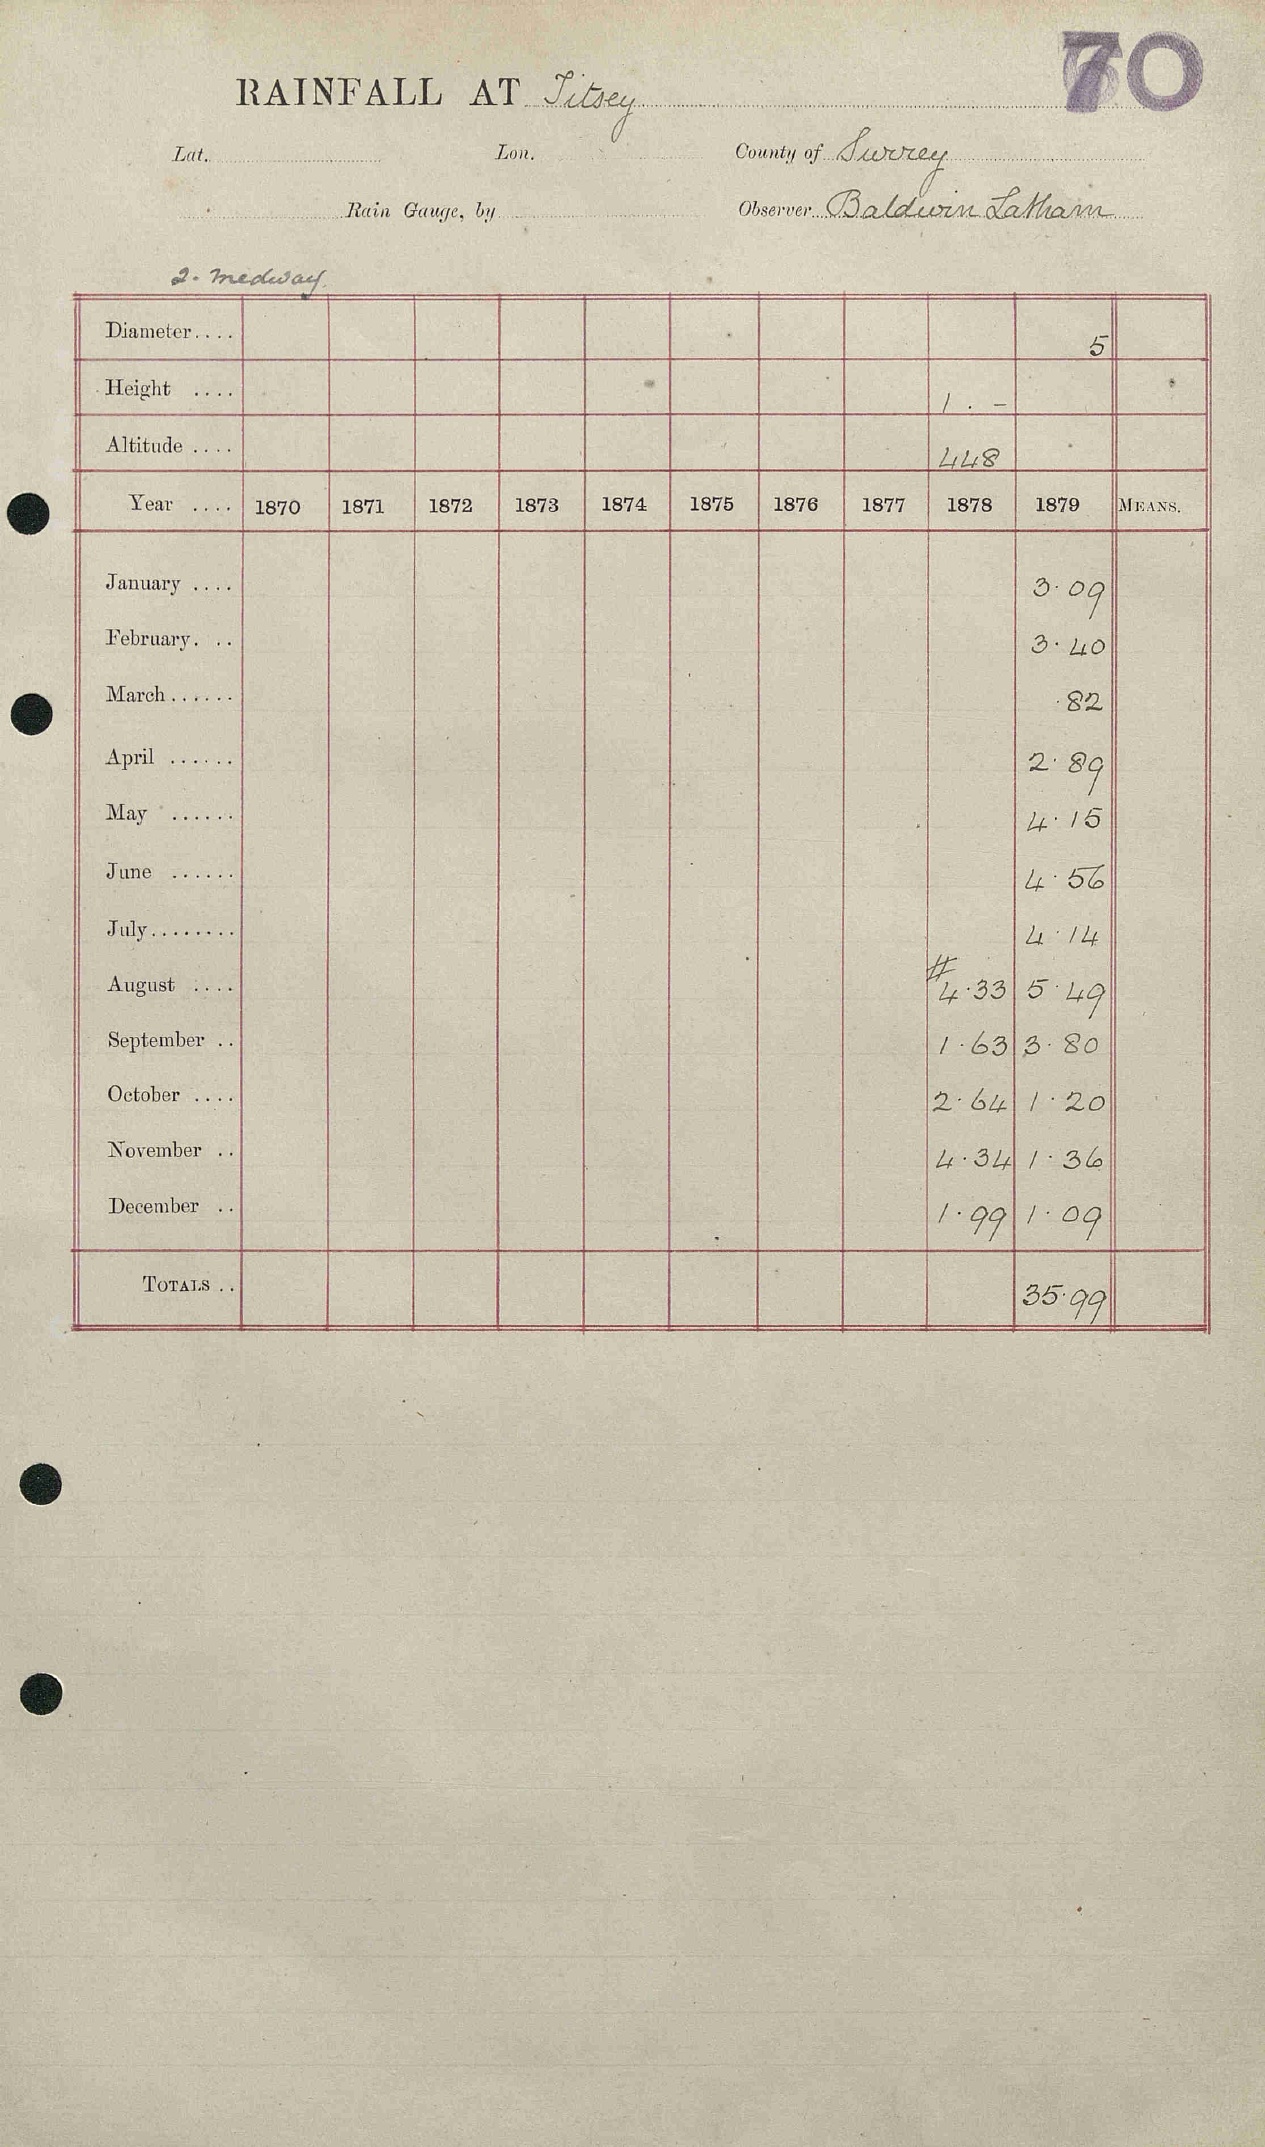 70
RAINFALL AT Titsey
Lat. Lon. County of Surrey
Rain Gauge, by Observer Baldwin Latham
2. Medway
Diameter.... 5
Height .... 1 . –
Altitude .... 448
Year .... 1870 1871 1872 1873 1874 1875 1876 1877 1878 1879 MEANS.
January .... 3.09
February. .. 3.40
March ...... .82
April ...... 2.89
May ...... 4.15
June ...... 4.56
July........ 4.14
August .... # 4.33 5.49
September .. 1.63 3.80
October .... 2.64 1.20
November .. 4.34 1.36
December .. 1.99 1.09
TOTALS .. 35.99